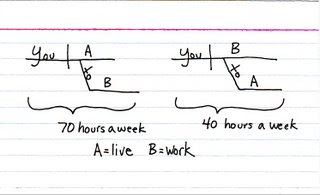 You A You B
to to
B A
70 hours a week 40 hours a week
A=live B=work